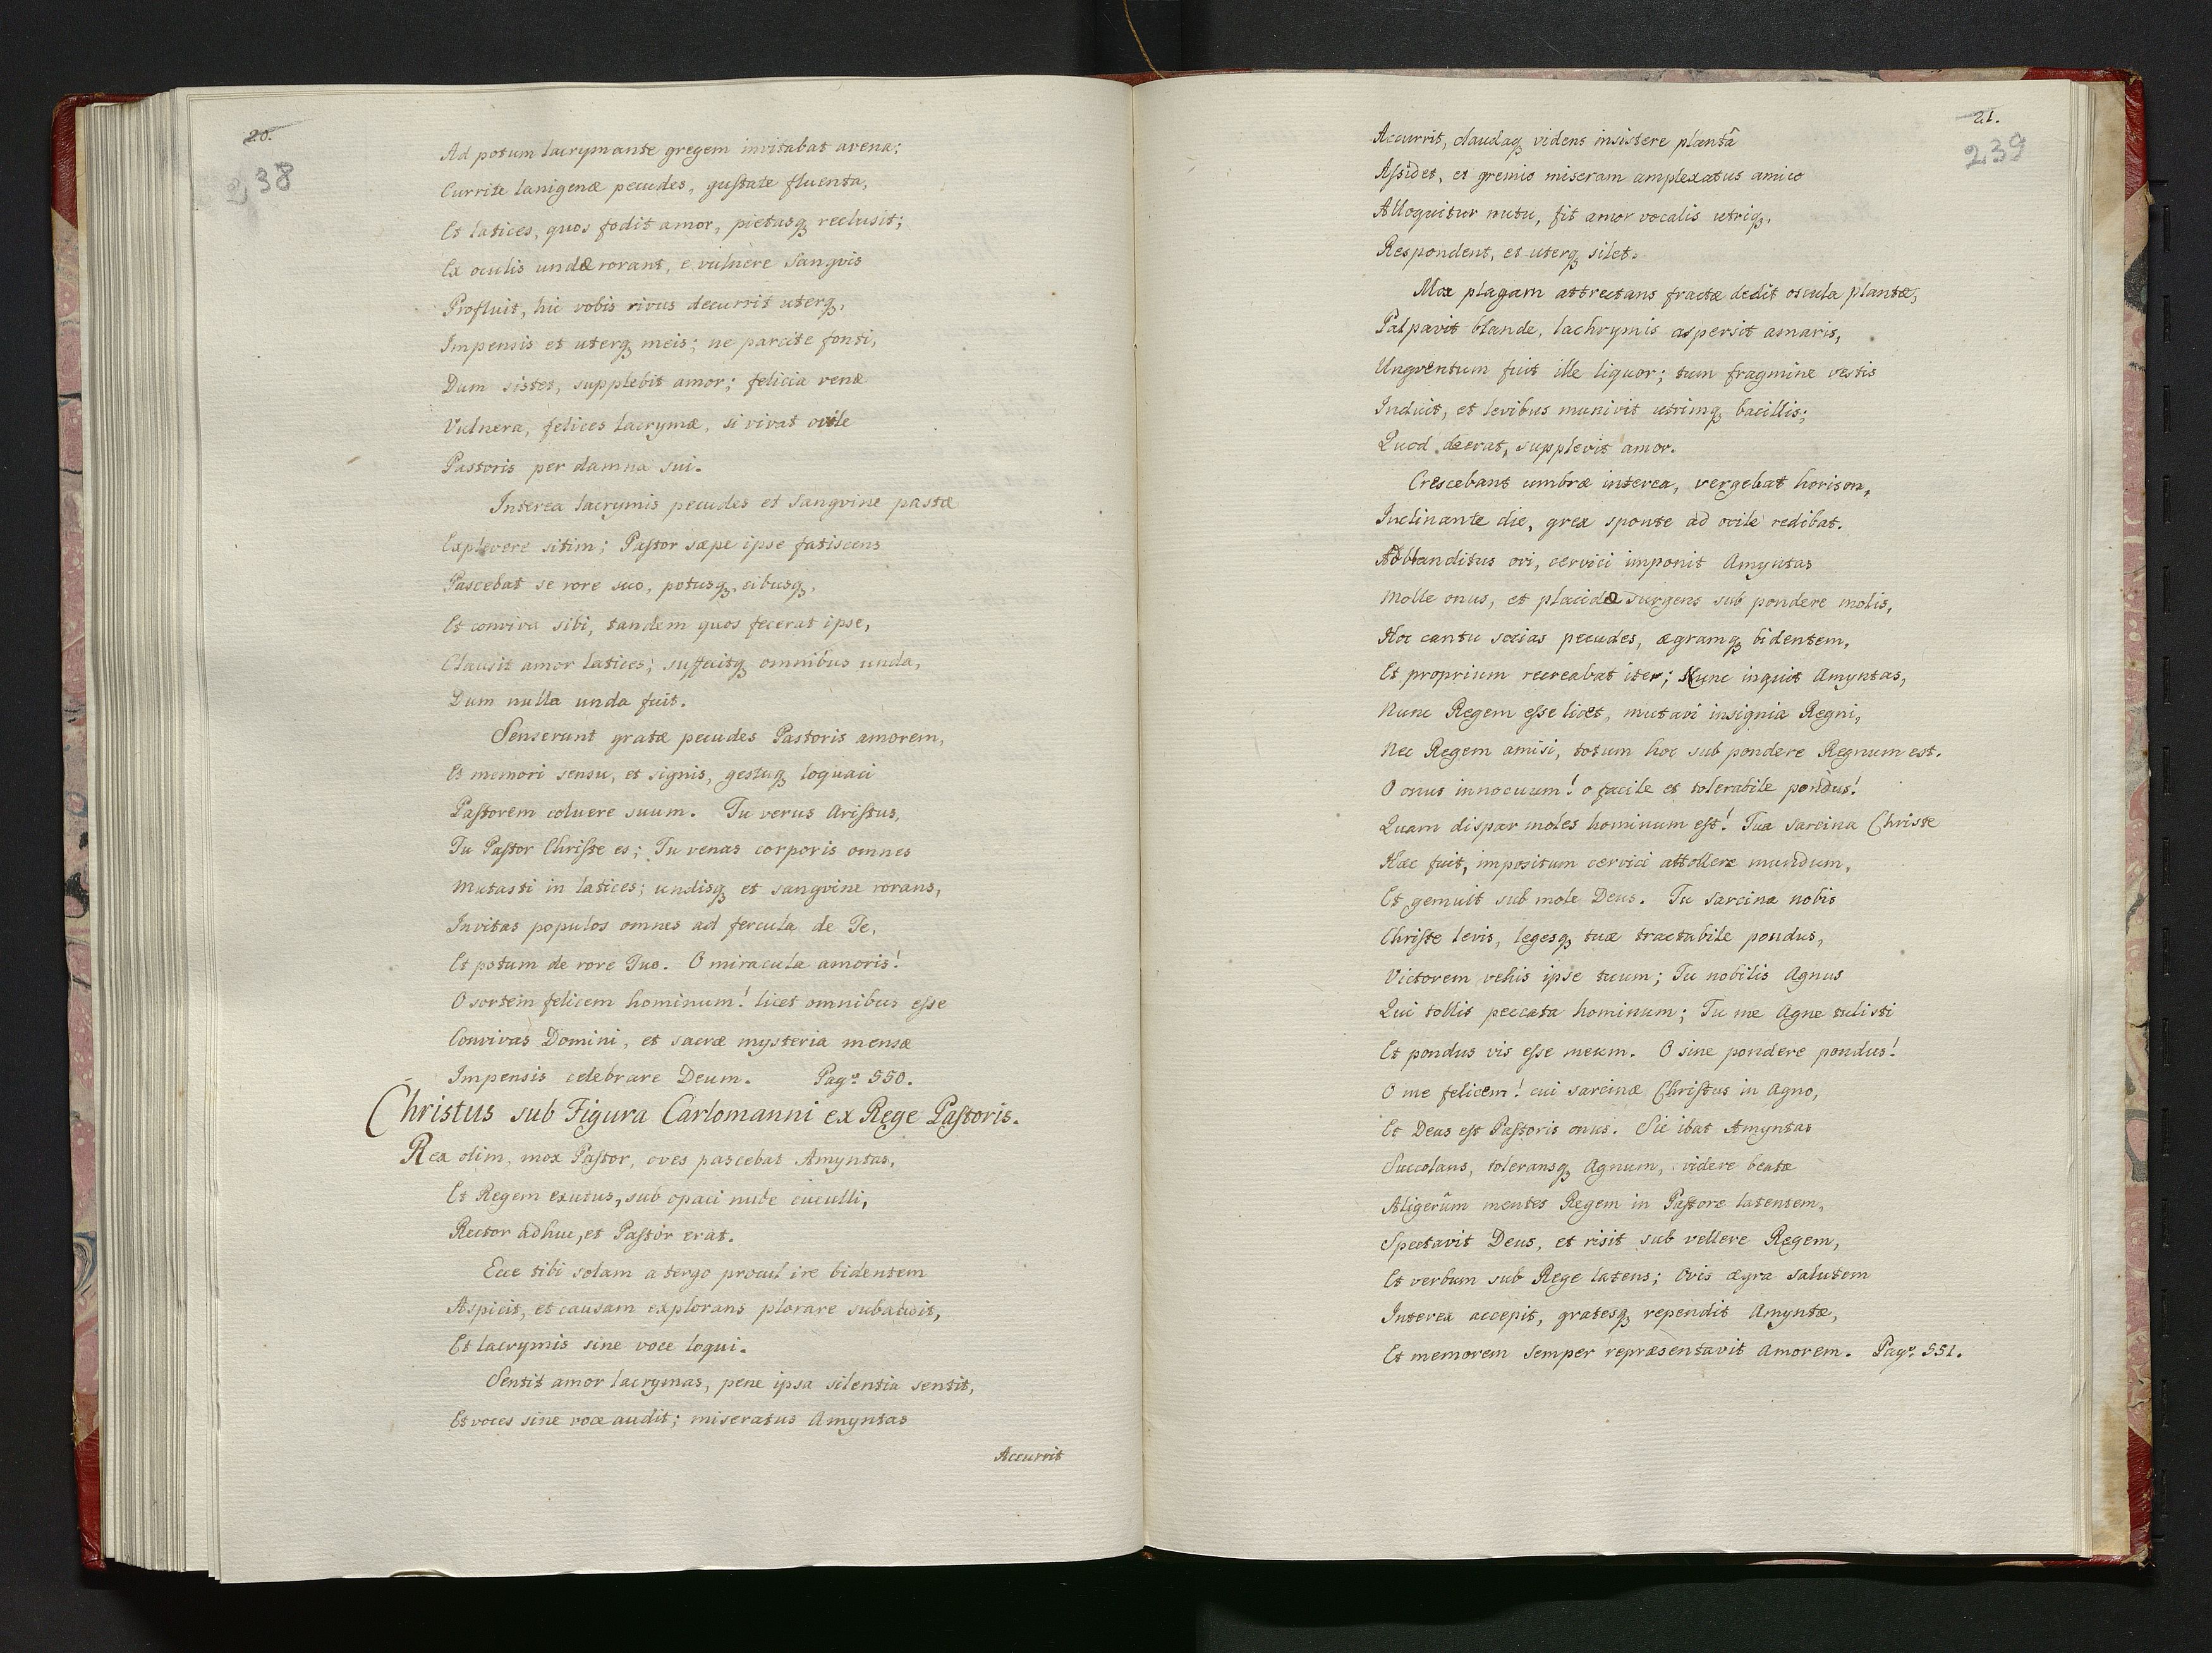 20.
238
Ad potum lacrymante gregem invitabat arena:
Currite lanigenæ pecudes, gustate fluenta,
Et latices, quos fodit amor, pietasq, reclusit;
Ex oculis undæ rorant, e vulnere Sangvis
Profluit, hic vobis rivus decurrit uterq,
Impensis et uterq, meis; ne parcite fonti,
Dum sistet, supplebit amor; felicia venæ
Vulnera, felices lacrymæ, si vivat ovile
Pastoris per damna sui.
Interea lacrymis pecudes et Sangvine pastæ
Explevere sitim; Pastor sæpe ipse fatiscens
Pascebat se rore suo, potusq, cibusq,
Et conviva sibi, tandem quos fecerat ipse,
Clausit amor latices; suffecitq, omnibus unda,
Dum nulla unda fuit.
Senserunt gratæ pecudes Pastoris amorem,
Et memori sensu, et signis, gestuq, loquaci
Pastorem coluere suum. Tu verus Aristus,
Tu Pastor Christe es; Tu venas corporis omnes
Mutasti in latices; undisq, et sangvine rorans,
Invitas populos omnes ad fercula de Te,
Et potum de rore Tuo. O miracula amoris!
O sortem felicem hominum! licet omnibus esse
Convivas Domini, et sacræ mysteria mensæ
Impensis celebrare Deum. Pag: 550.
Christus sub Figura Carlomanni ex Rege Pastoris.
Rex olim, mox Pastor, oves pascebat Amyntas,
Et Regem exutus, sub opaci nube cuculli,
Rector adhuc, et Pastor erat.
Ecce tibi solam a tergo procul ire bidentem
Aspicit, et causam explorans plorare subaudit,
Et lacrymis sine voce loqui.
Sentit amor lacrymas, pene ipsa silentia sentit,
Et voces sine voce audit; miseratus Amyntas
Accurrit
21.
239
Accurrit, claudaq, videns insistere plantâ
Assidet, et gremio miseram amplexatus amico
Alloquitur nutu, fit amor vocalis utriq,
Respondent, et uterq, silet.
Mox plagam attrectans fractæ dedit oscula plantæ,
Palpavit blande, lachrymis aspersit amaris,
Ungventum fuit ille liquor; tum fragmine vestis
Induit, et levibus munivit utrimq, bacillis;
Quod deerat, supplevit amor.
Crescebant umbræ interea, vergebat horison,
Inclinante die, grex sponte ad ovile redibat.
Adblanditus ovi, cervici imponit Amyntas
Molle onus, et placidæ surgens sub pondere molis,
Hoc cantu socias pecudes, ægramq, bidentem,
Et proprium recreabat iter; Nunc inquit Amyntas,
Nunc Regem esse licet, mutavi insignia Regni,
Nec Regem amisi, totum hoc sub pondere Regnum est.
O onus innocuum! o facile et tolerabile pondus!
Quam dispar moles hominum est! Tua sarcina Christe
Hæc fuit, impositum cervici attollere mundum,
Et gemuit sub mole Deus. Tu sarcina nobis
Christe levis, legesq, tuæ tractabile pondus,
Victorem vehis ipse tuum; Tu nobilis Agnus
Qui tollis peccata hominum; Tu me Agne tulisti
Et pondus vis esse meum. O sine pondere pondus!
O me felicem! cui sarcinæ Christus in Agno,
Et Deus est Pastoris onus. Sic ibat Amyntas
Succolans, toleransq, Agnum, videre beatæ
Aligerûm mentes Regem in Pastore latentem,
Spectavit Deus, et risit sub vellere Regem,
Et verbum sub Rege latens; Ovis ægra salutem
Interea accepit, gratesq, rependit Amyntæ,
Et memorem semper repræsentavit Amorem. Pag: 551.